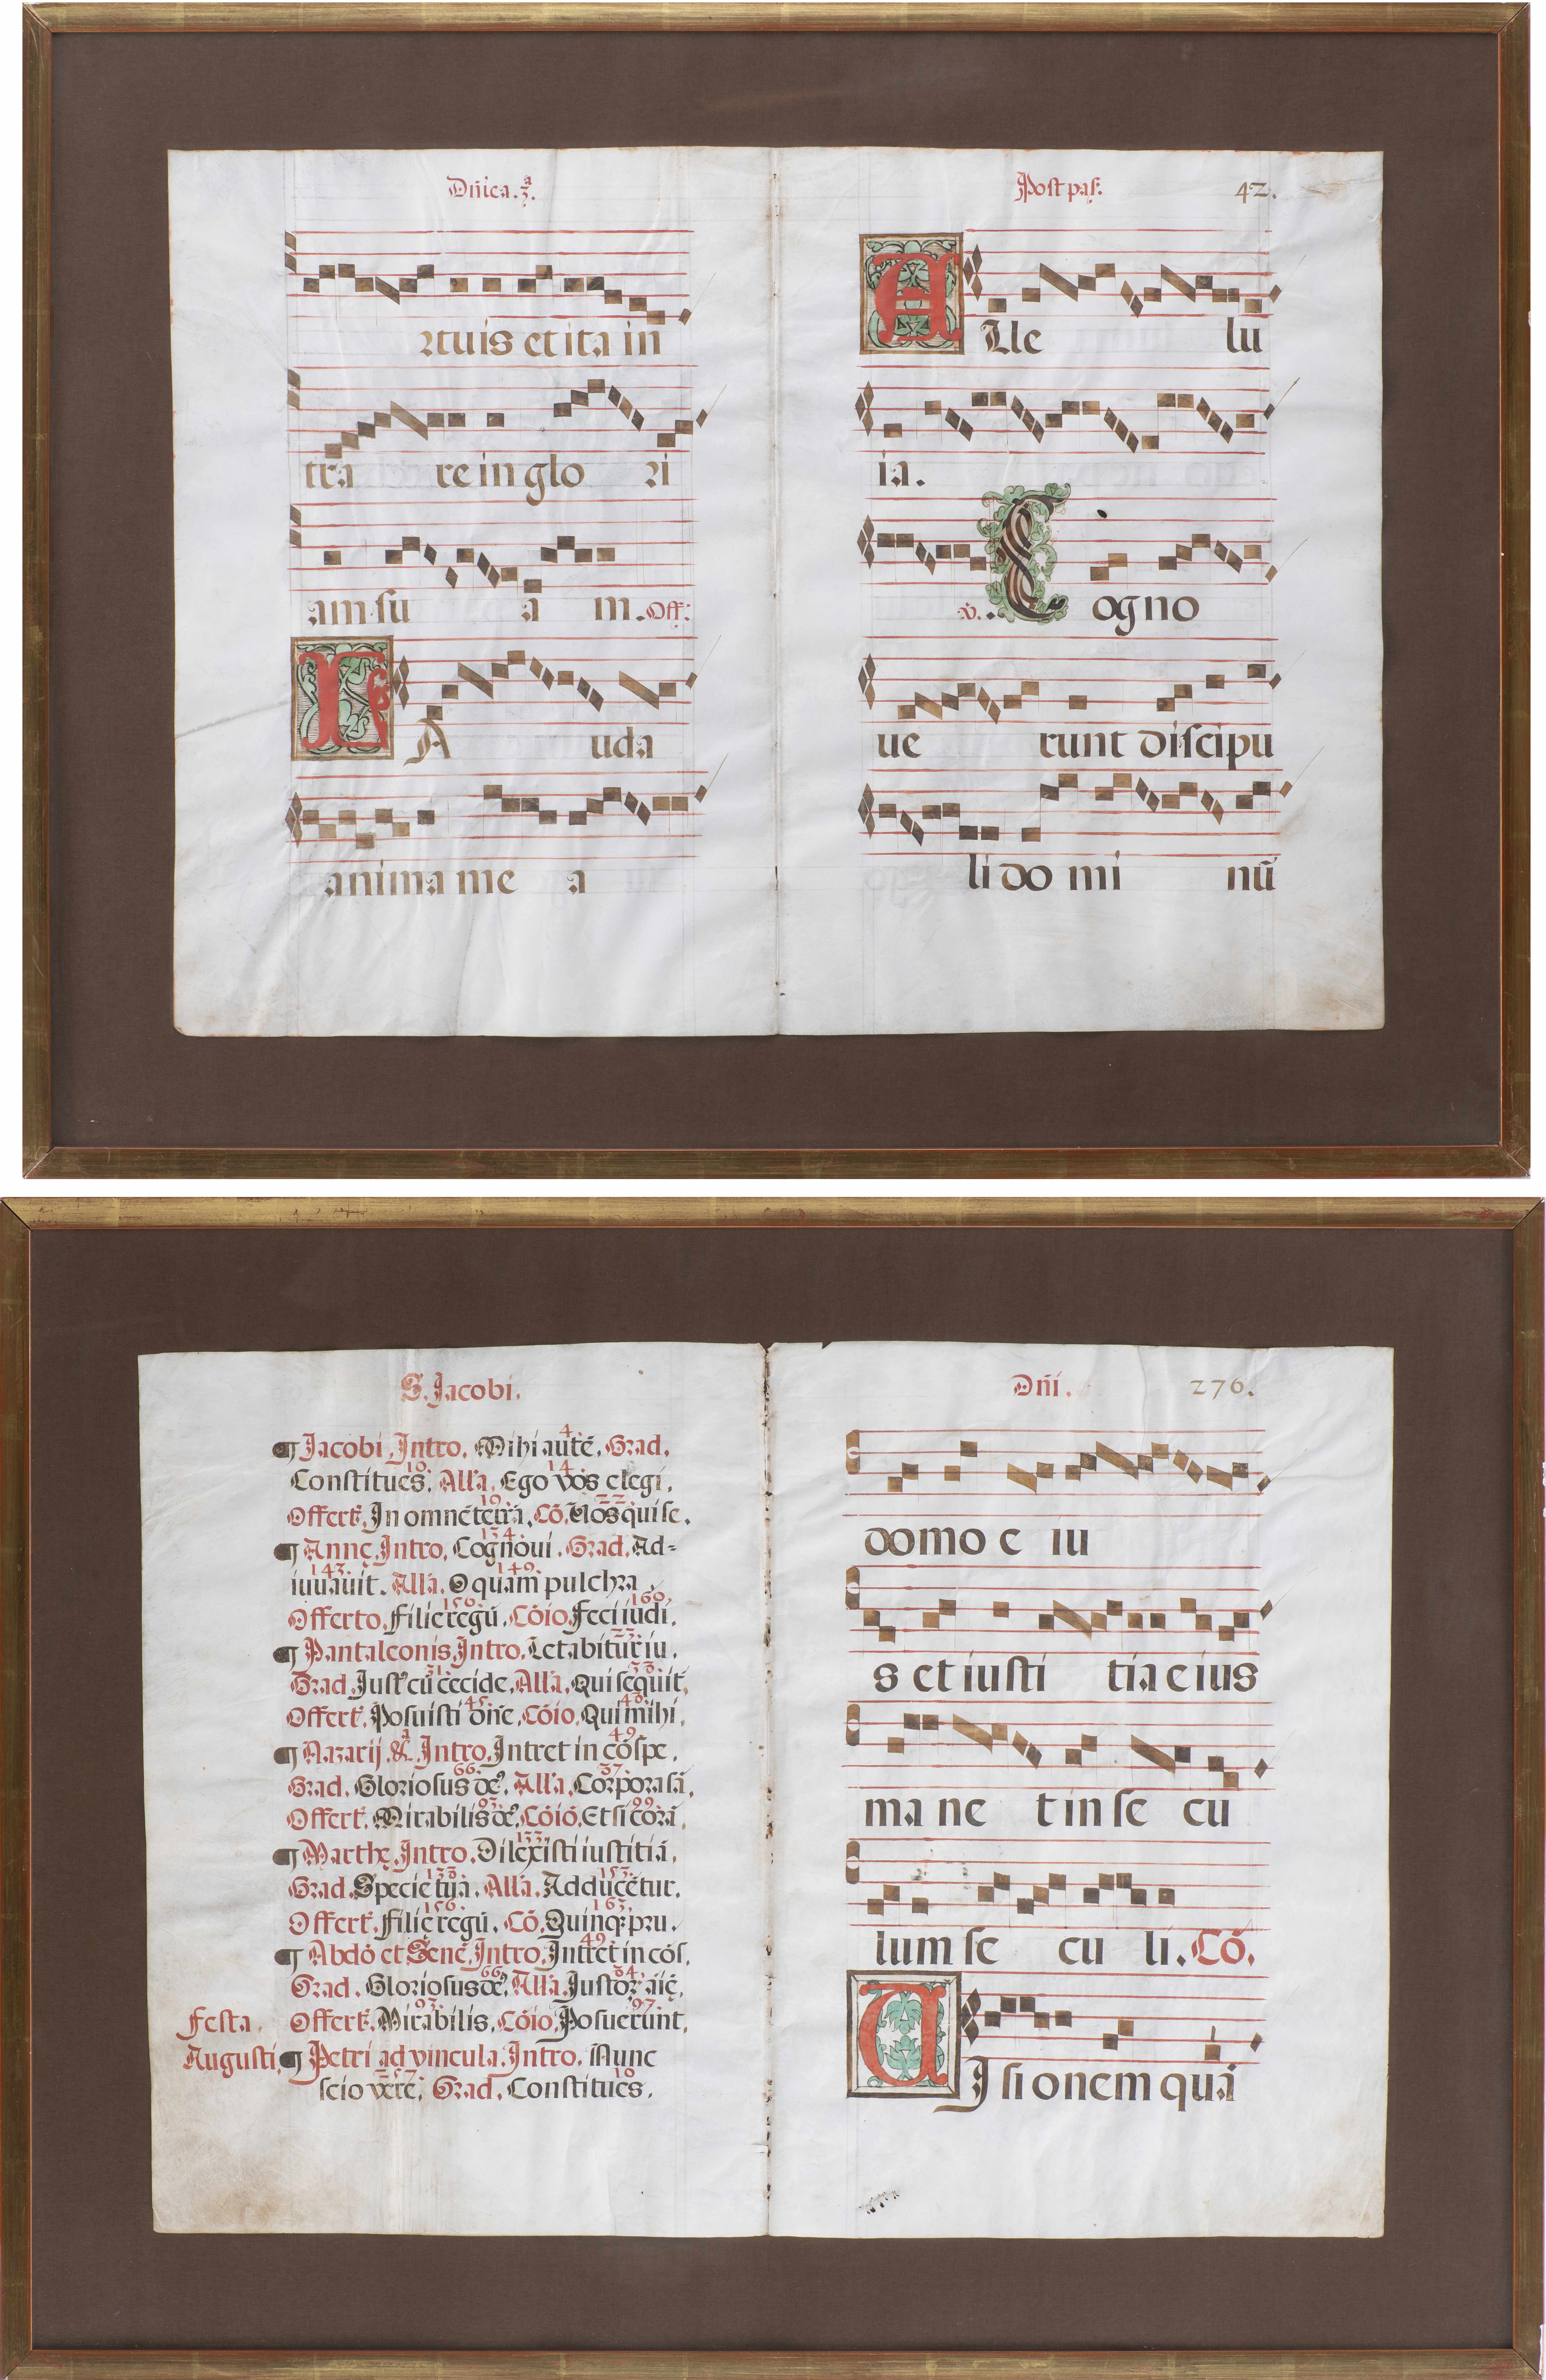 Dñica.3ª.
rtuis et ita in
tra re in glo ri
am su a m. Off:
LA uda
anima me a
Post pas: 42.
Alle lu
ia.
v. Cogno
ue runt discipu
li do mi nũ
S. Jacobi.
¶ Jacobi. Intro. Mihi autẽ. 4. Grad.
Constitues. 10. Alla. Ego vos elegi. 14.
Offert. In omnẽ terrã. 19. Cõ. Vos qui se. 22.
¶ Annę. Intro. Cognoui. 134. Grad. Ad=
iuuauit. 143. Alla. O quam pulchra. 149.
Offerto. Filie regũ. 156. Cõio. Feci iudi. 160.
¶ Pantaleonis. Intro. Letabitur iu. 23.
Grad. Just9 cũ cecide. 31. Alla. Qui sequit. 33.
Offert. Posuisti dñe. 45. Cõio. Qui mihi. 48.
¶ Nazarij. &. Intro. Intret in cõspe. 49.
Grad. Gloriosus de9. 66. Alla. Corpora sã. 37.
Offert. Mirabilis de9. 93. Cõio. Et si corã. 99.
¶ Marthę. Intro. Dilexisti iustitiã. 133.
Grad. Specie tua. 138. Alla. Adducẽtur. 153.
Offert. Filię regũ. 156. Cõ. Quinq; pru. 163.
¶ Abdõ et Senẽ. Intro. Intret in cõs. 49.
Grad. Gloriosus de9. 66. Alla. Justoꝝ aię. 84.
Festa. Offert. Mirabilis. 93. Cõio. Posuerunt. 97.
Augusti. ¶ Petri ad vincula. Intro. Nunc
scio vere. Grad. Constitues. 10.
Dñi. 276.
domo e iu
s et iusti tia eius
ma ne t in se cu
lum se cu li. Cõ.
VIsionem quã